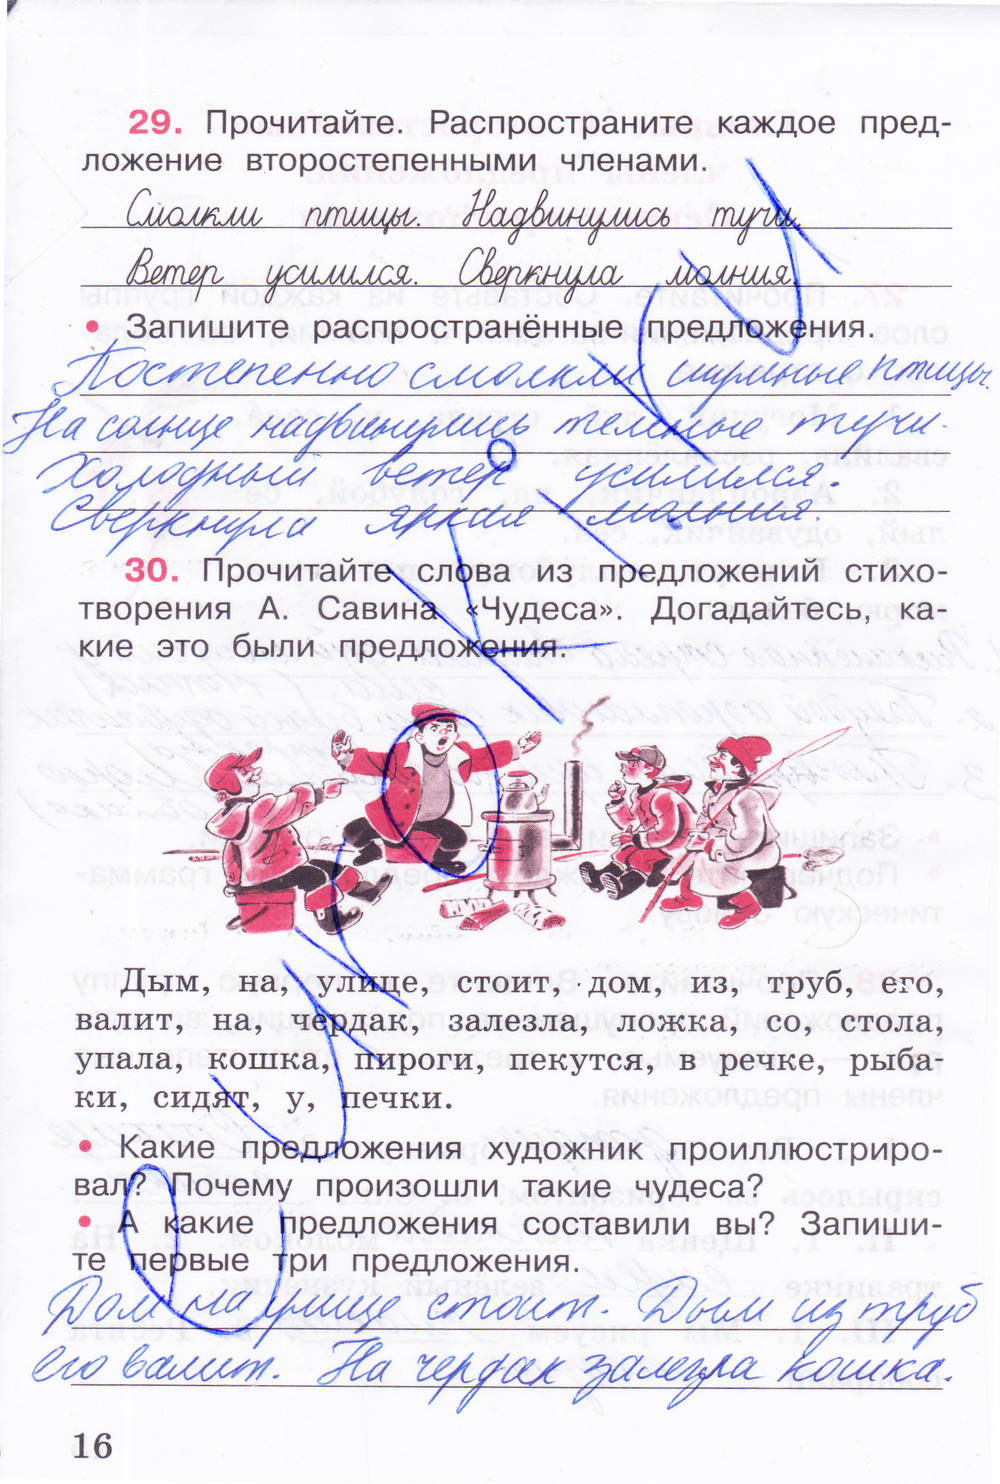 29. Прочитайте. Распространите каждое пред-
ложение второстепенными членами.
Смолкли птицы. Надвинулись тучи.
Ветер усилился. Сверкнула молния.
• Запишите распространённые предложения.
Постепенно смолкли шумные птицы.
На солнце надвинулись темные тучи.
Холодный ветер усилился.
Сверкнула яркая молния.
30. Прочитайте слова из предложений стихо-
творения А. Савина «Чудеса». Догадайтесь, ка-
кие это были предложения.
Дым, на, улице, стоит, дом, из, труб, его,
валит, на, чердак, залезла, ложка, со, стола,
упала, кошка, пироги, пекутся, в речке, рыба-
ки, сидят, у, печки.
• Какие предложения художник проиллюстриро-
вал? Почему произошли такие чудеса?
• А какие предложения составили вы? Запиши-
те первые три предложения.
Дом на улице стоит. Дым из труб
его валит. На чердак залезла кошка.
16